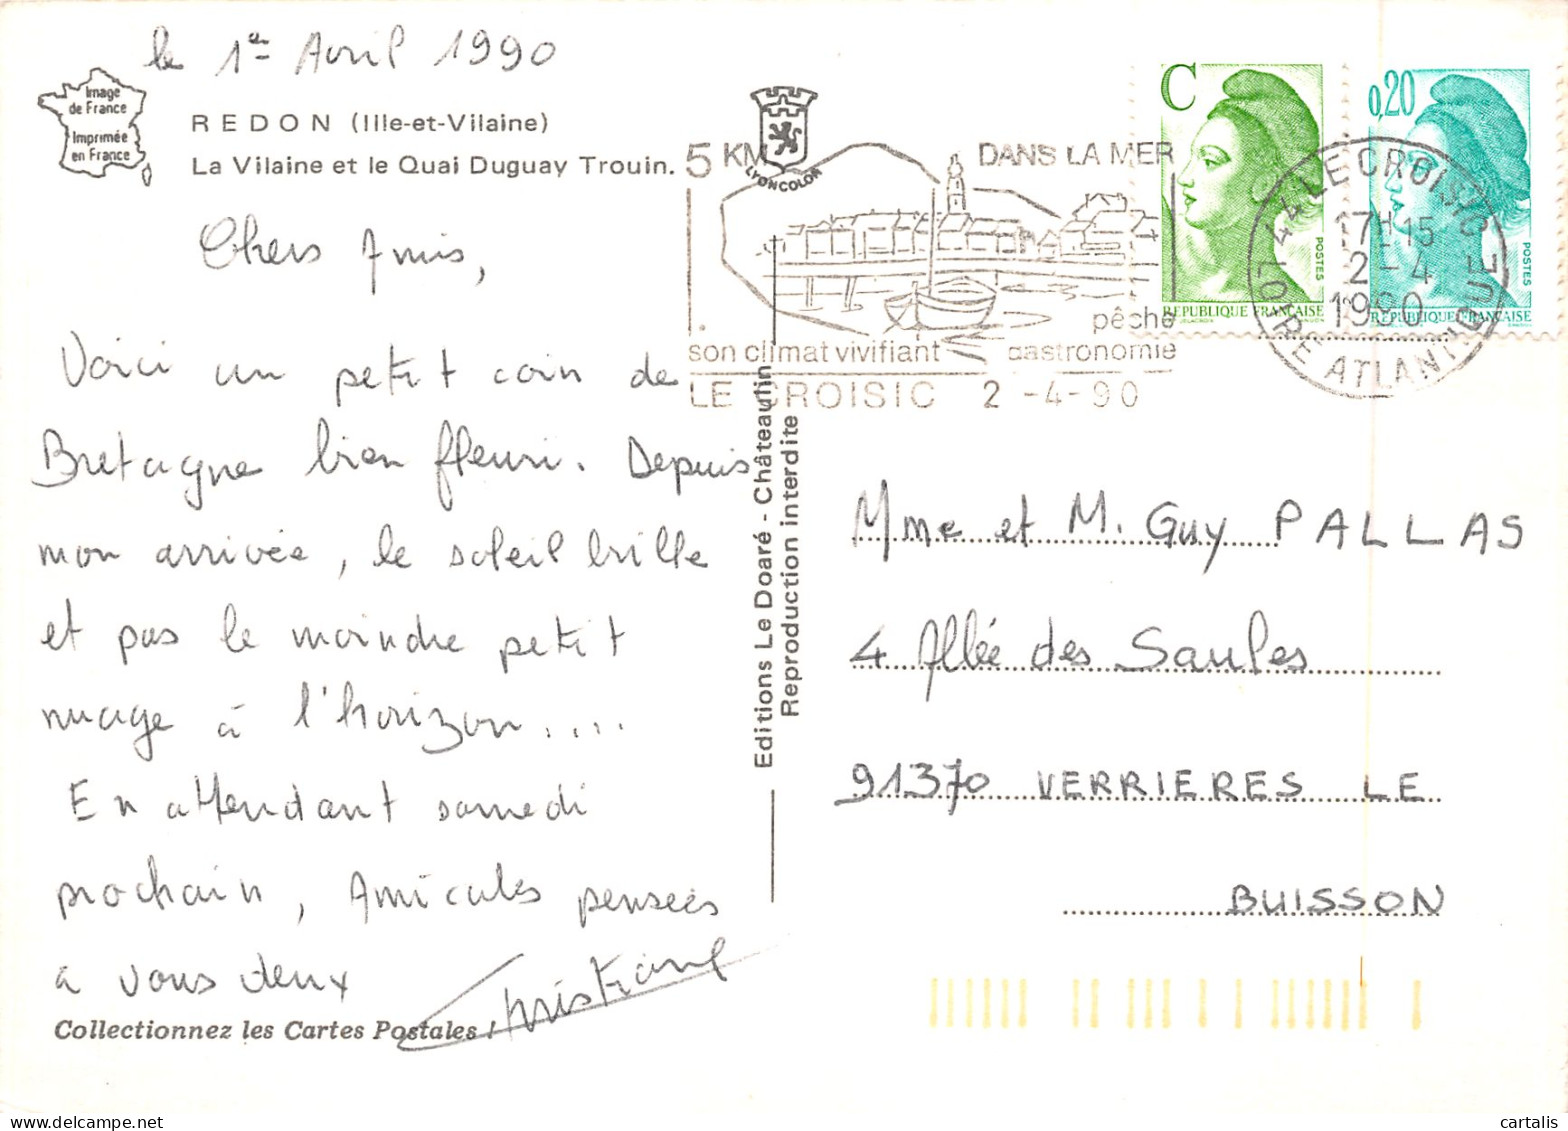 le 1er Avril 1990
Image
de France
Imprimée
en France
REDON (Ille-et-Vilaine)
La Vilaine et le Quai Duguay Trouin.
LYONCOLOR
Chers Amis,
Voici un petit coin de
Bretagne bien fleuri. Depuis
mon arrivée, le soleil brille
et pas le moindre petit
nuage à l'horizon....
En attendant samedi
prochain, Amicales pensées
à vous deux
Christiane
Collectionnez les Cartes Postales
5 KM DANS LA MER
pêche
son climat vivifiant gastronomie
LE CROISIC 2 -4- 90
C
POSTES
REPUBLIQUE FRANÇAISE
0,20
POSTES
REPUBLIQUE FRANÇAISE
44 LE CROISIC
17H15
2-4
1990
LOIRE ATLANTIQUE
Editions Le Doaré - Châteaulin
Reproduction interdite
Mme et M. Guy PALLAS
4 Allée des Saules
91370 VERRIERES LE
BUISSON
cartalis